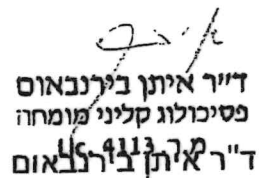 ד״ר איתן בירנבאום
פסיכולוג קליני מומחה
4113
ד"ר איתן בירנבאום